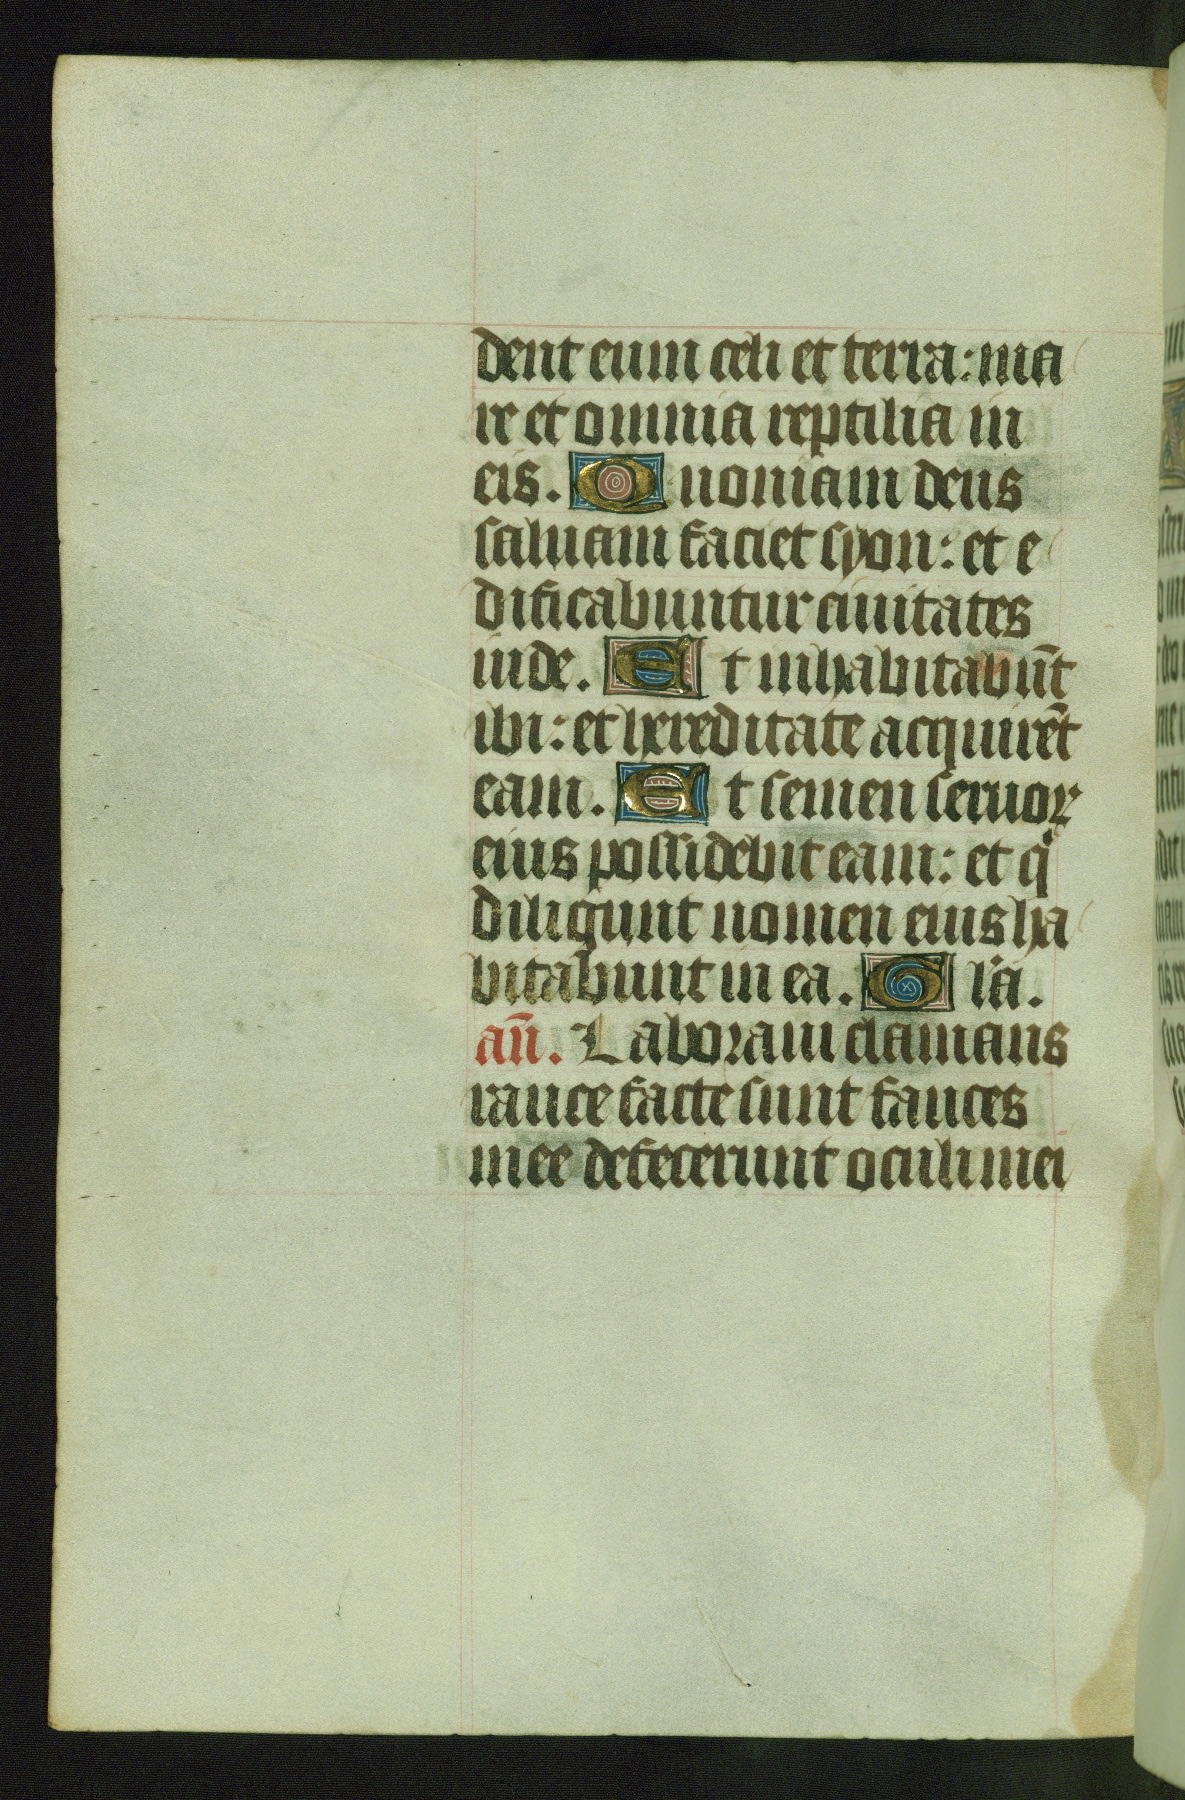 dent eum celi et terra: ma
re et omnia reptilia in
eis. Quoniam deus
saluam faciet syon: et e
dificabuntur ciuitates
iude. Et inhabitabūt
ibi: et hereditate acquirēt
eam. Et semen seruoꝝ
eius possidebit eam: et qͥ
diligunt nomen eius ha
bitabunt in ea. Gl'a.
an̄. Laboraui clamans
rauce facte sunt fauces
mee defecerunt oculi mei